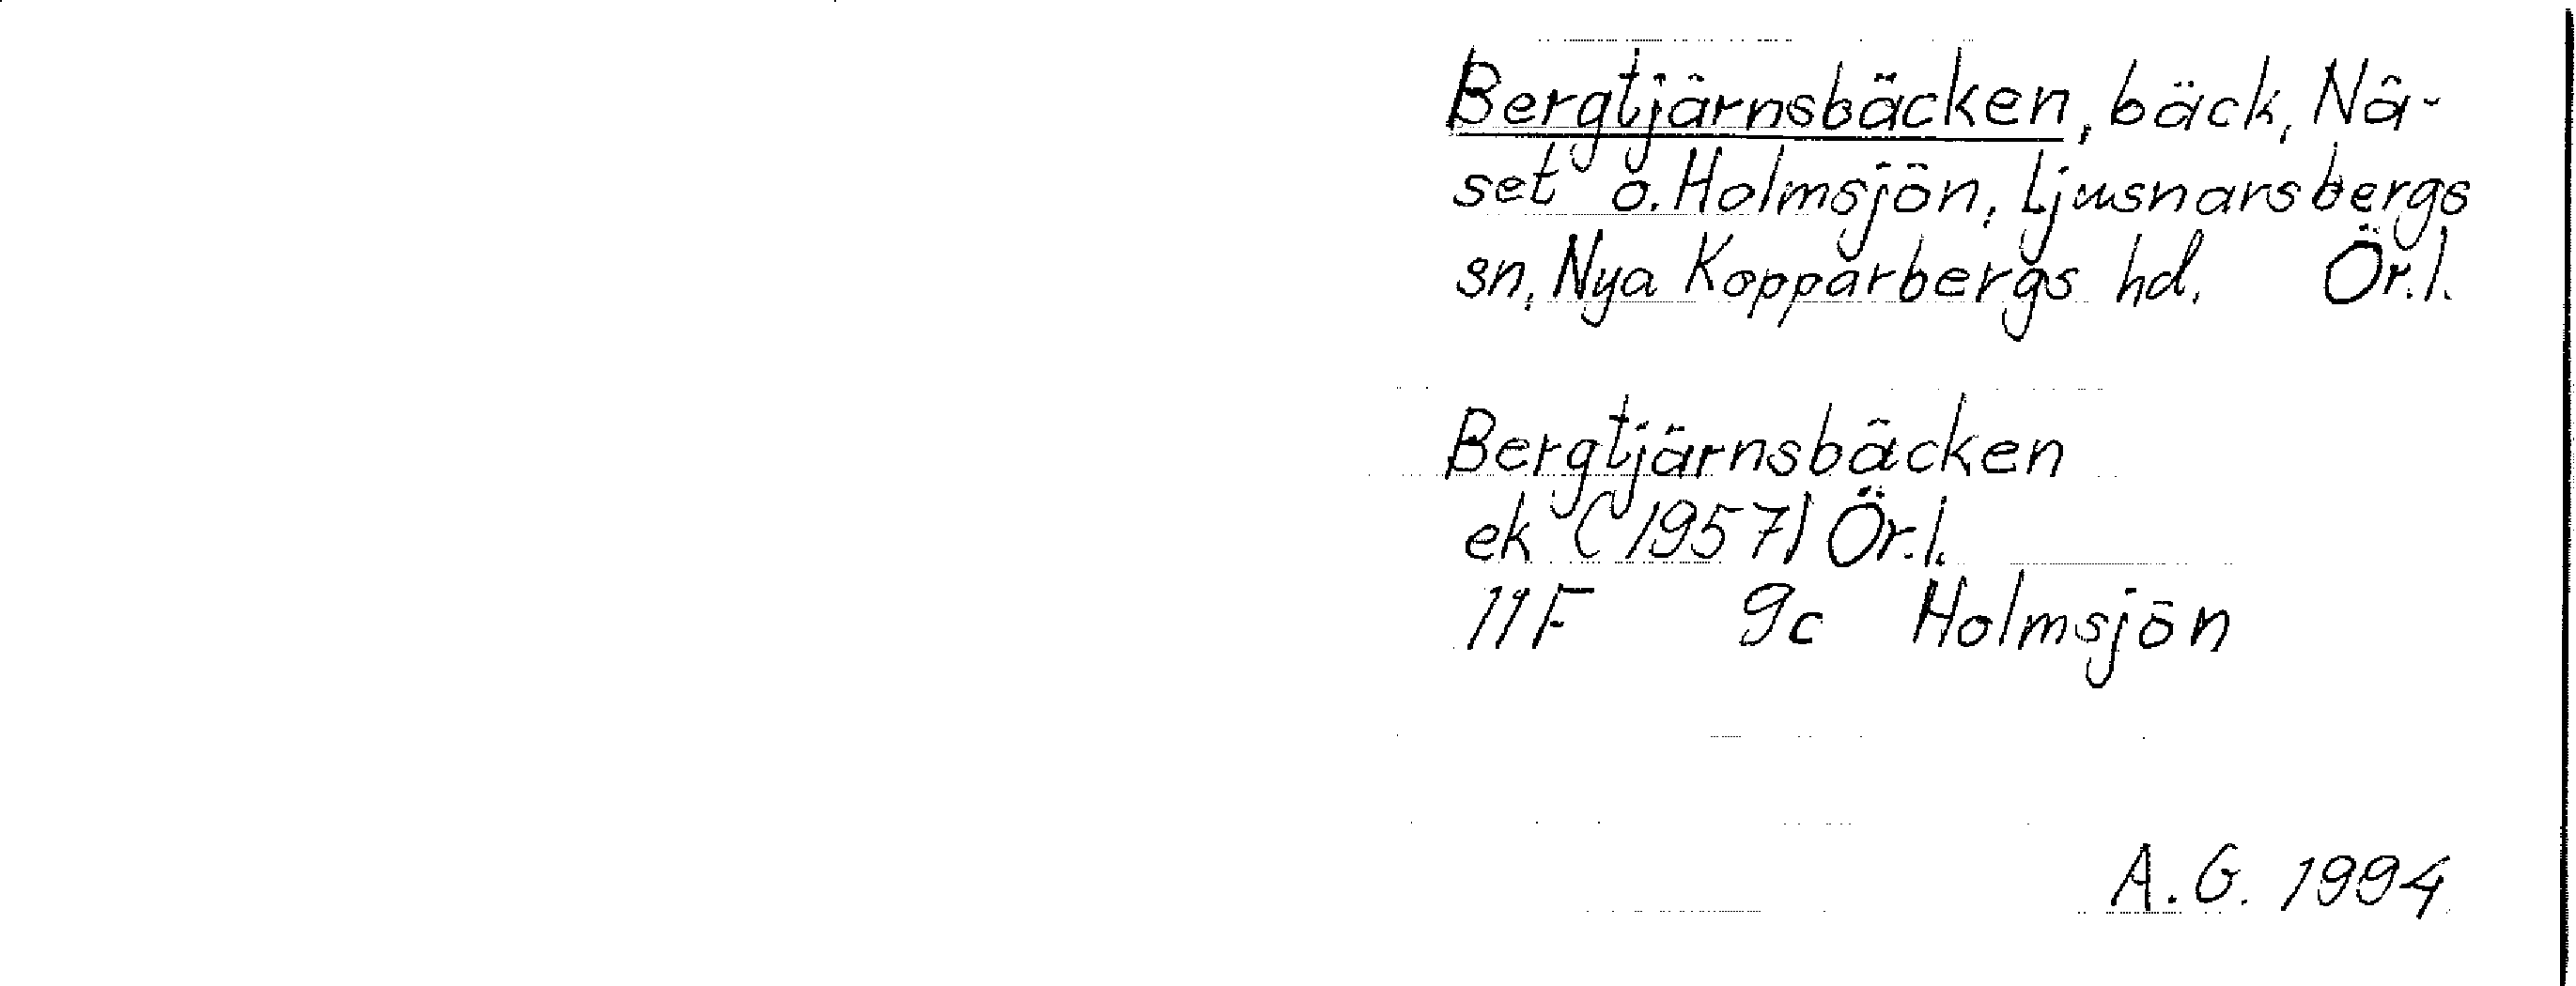 Bergtjärnsbäcken, bäck, Nä-
set o. Holmsjön, Ljusnarsbergs
sn, Nya Kopparbergs hd. Ör.l.
Bergtjärnsbäcken
ek (1957) Ör.l.
11F 9c Holmsjön
A.G. 1994